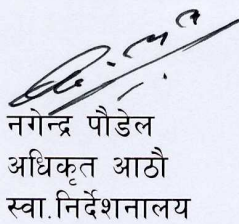 नगेन्द्र पौडेल
अधिकृत आठौ
स्वा.निर्देशनालय